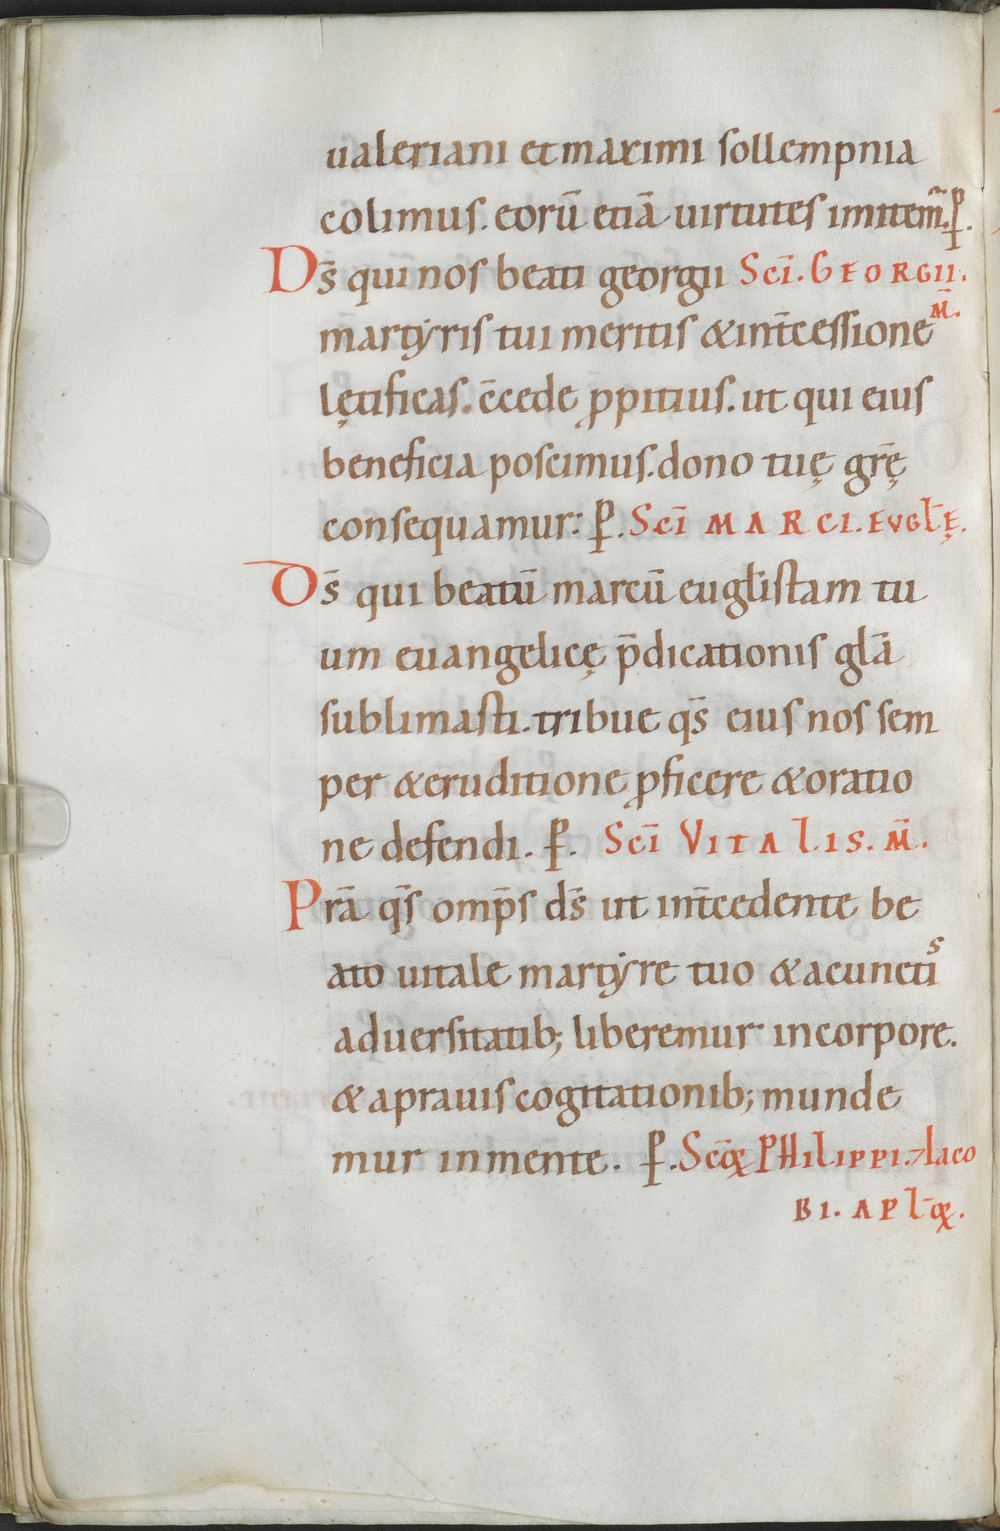 ualeriani et maximi sollempnia
colimus. eorū etiā uirtutes imitem̄. ꝑ.
Ds̄ qui nos beati georgii Scī. GEORGII. M̄.
martẏris tui meritis & int̄cessione
lętificas. c̄cede ꝓpitius. ut qui eius
beneficia poscimus. dono tuę gr̄ę
consequamur: ꝑ. Scī MARCI. EVGL̄Ę.
Ds̄ qui beatū marcū eugl̄istam tu
um euangelicę p̄dicationis gl̄a
sublimasti. tribue qs̄ eius nos sem
per & eruditione ꝓficere & oratio
ne defendi. ꝑ. Scī VITALIS. M̄.
Prā qs̄ omp̄s ds̄ ut int̄cedente be
ato uitale martẏre tuo & a cunctis
aduersitatib; liberemur in corpore.
& a prauis cogitationib; munde
mur in mente. ꝑ. Scōꝝ PHILIPPI. ⁊ Iaco
BI. APL̄ꝝ.